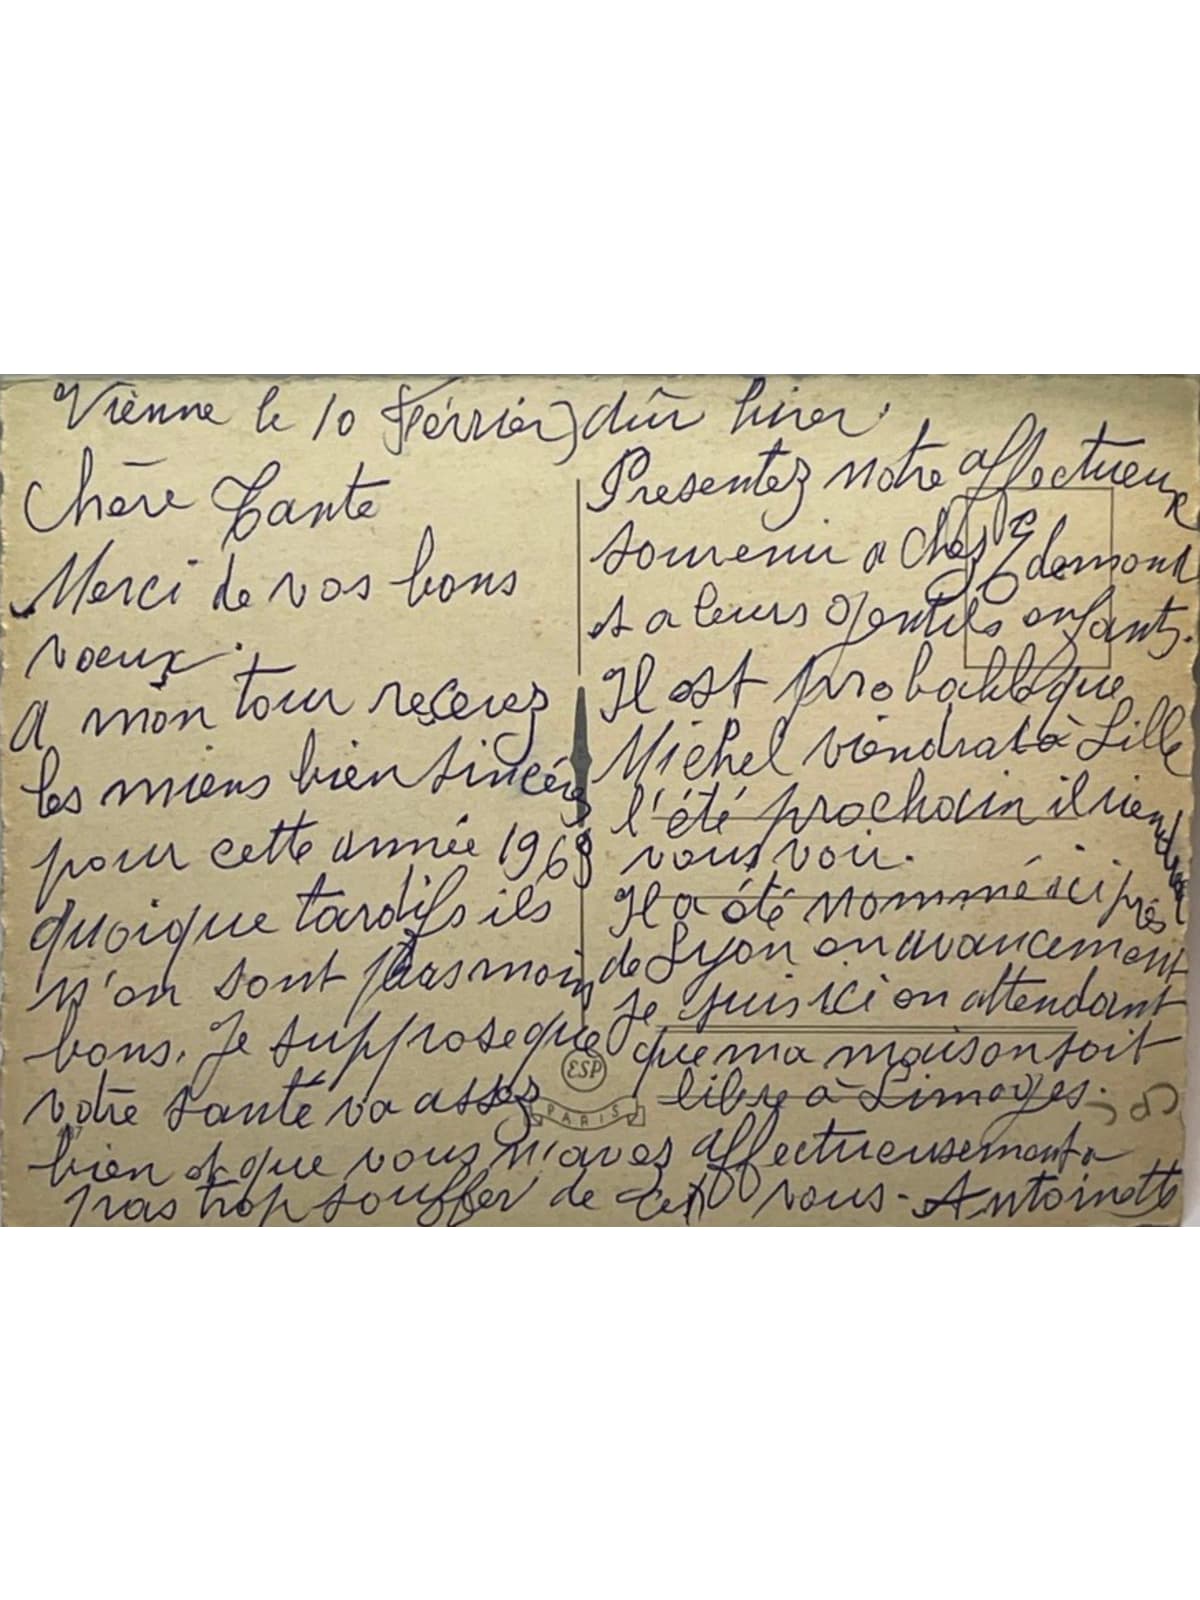 Vienne le 10 (Février) dûr hiver.
Chère Tante
Merci de vos bons
voeux.
A mon tour recevez
les miens bien sincères
pour cette année 1969
quoique tardifs ils
n'en sont pas moins
bons. Je suppose que
votre santé va assez
bien et que vous n'avez
pas trop souffer de cet
Presentez notre affectueux
souvenir a chez Edemond
et a leurs gentils enfants.
Il est probable que
Michel viendrat à Lille
l'été prochain il viendra
vous voir.
Il a été nommé ici près
de Lyon en avancement
Je suis ici en attendant
que ma maison soit
libre à Limoges.
affectueusement a
vous - Antoinette
ESP
PARIS